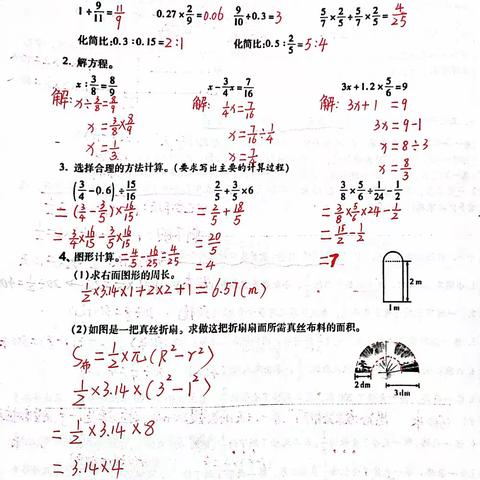 1+9/11=11/9 0.27×2/9=0.06 9/10+0.3=3 5/7×2/5+5/7×2/5=4/25
化简比:0.3:0.15=2:1 化简比:0.5:2/5=5:4
2. 解方程。
x:3/8=8/9 x-3/4x=7/16 3x+1.2×5/6=9
解: x÷3/8=8/9 解: 1/4x=7/16 解: 3x+1=9
x=3/8×8/9 x=7/16÷1/4 3x=9-1
x=1/3 x=7/4 x=8÷3
x=8/3
3. 选择合理的方法计算。(要求写出主要的计算过程)
(3/4-0.6)÷15/16 2/5+3/5×6 3/8×5/6÷1/24-1/2
=(3/4-3/5)×16/15 =2/5+18/5 =3/8×5/6×24-1/2
=3/4×16/15-3/5×16/15 =20/5 =15/2-1/2
4. 图形计算。=4/5-16/25=4/25 =4 =7
(1)求右面图形的周长。
1/2×3.14×1+2×2+1=6.57(m)
2m
1m
(2)如图是一把真丝折扇。求做这把折扇扇面所需真丝布料的面积。
S布=1/2×π×(R²-r²)
1/2×3.14×(3²-1²)
2dm 3dm
=1/2×3.14×8
=3.14×4